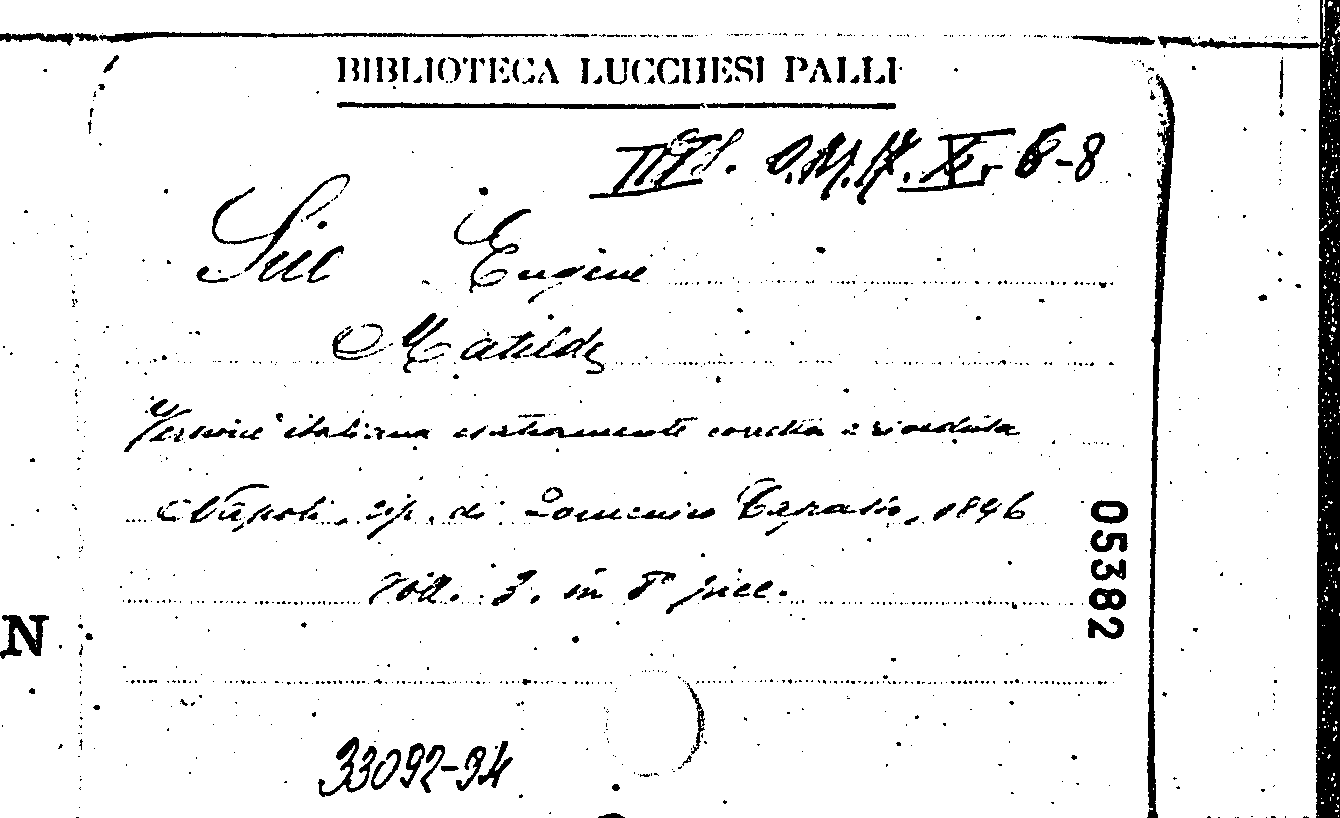 BIBLIOTECA LUCCHESI PALLI
6-8
Sue Eugène
Matilde
Version italiana esattamente corretta e riveduta
Napoli, tip. di Domenico Capasso, 1846
voll. 3. in 8° picc.
05382
N
33092-94